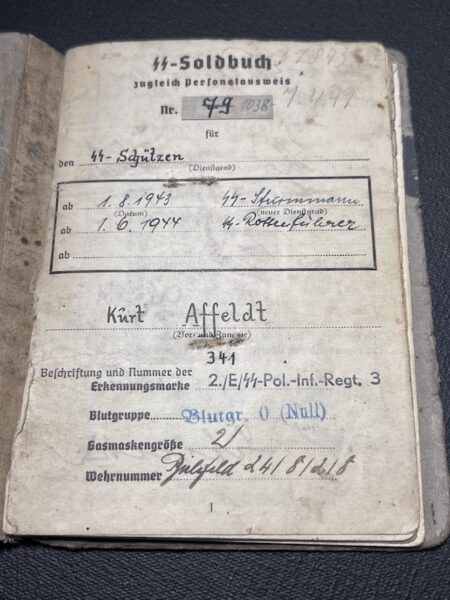 ᛋᛋ-Soldbuch
zugleich Personalausweis
Nr. 79 1038
für
den ᛋᛋ-Schützen
(Dienstgrad)
ab 1.8.1943 ᛋᛋ-Sturmmann
(Datum) (neuer Dienstgrad)
ab 1.6.1944 ᛋᛋ-Rottenführer
ab
Kurt Affeldt
(Vor- und Zuname)
341
Beschriftung und Nummer der
Erkennungsmarke 2./E/ᛋᛋ-Pol.-Inf.-Regt. 3
Blutgruppe Blutgr. 0 (Null)
Gasmaskengröße 2/
Wehrnummer 24/8/2/8
1